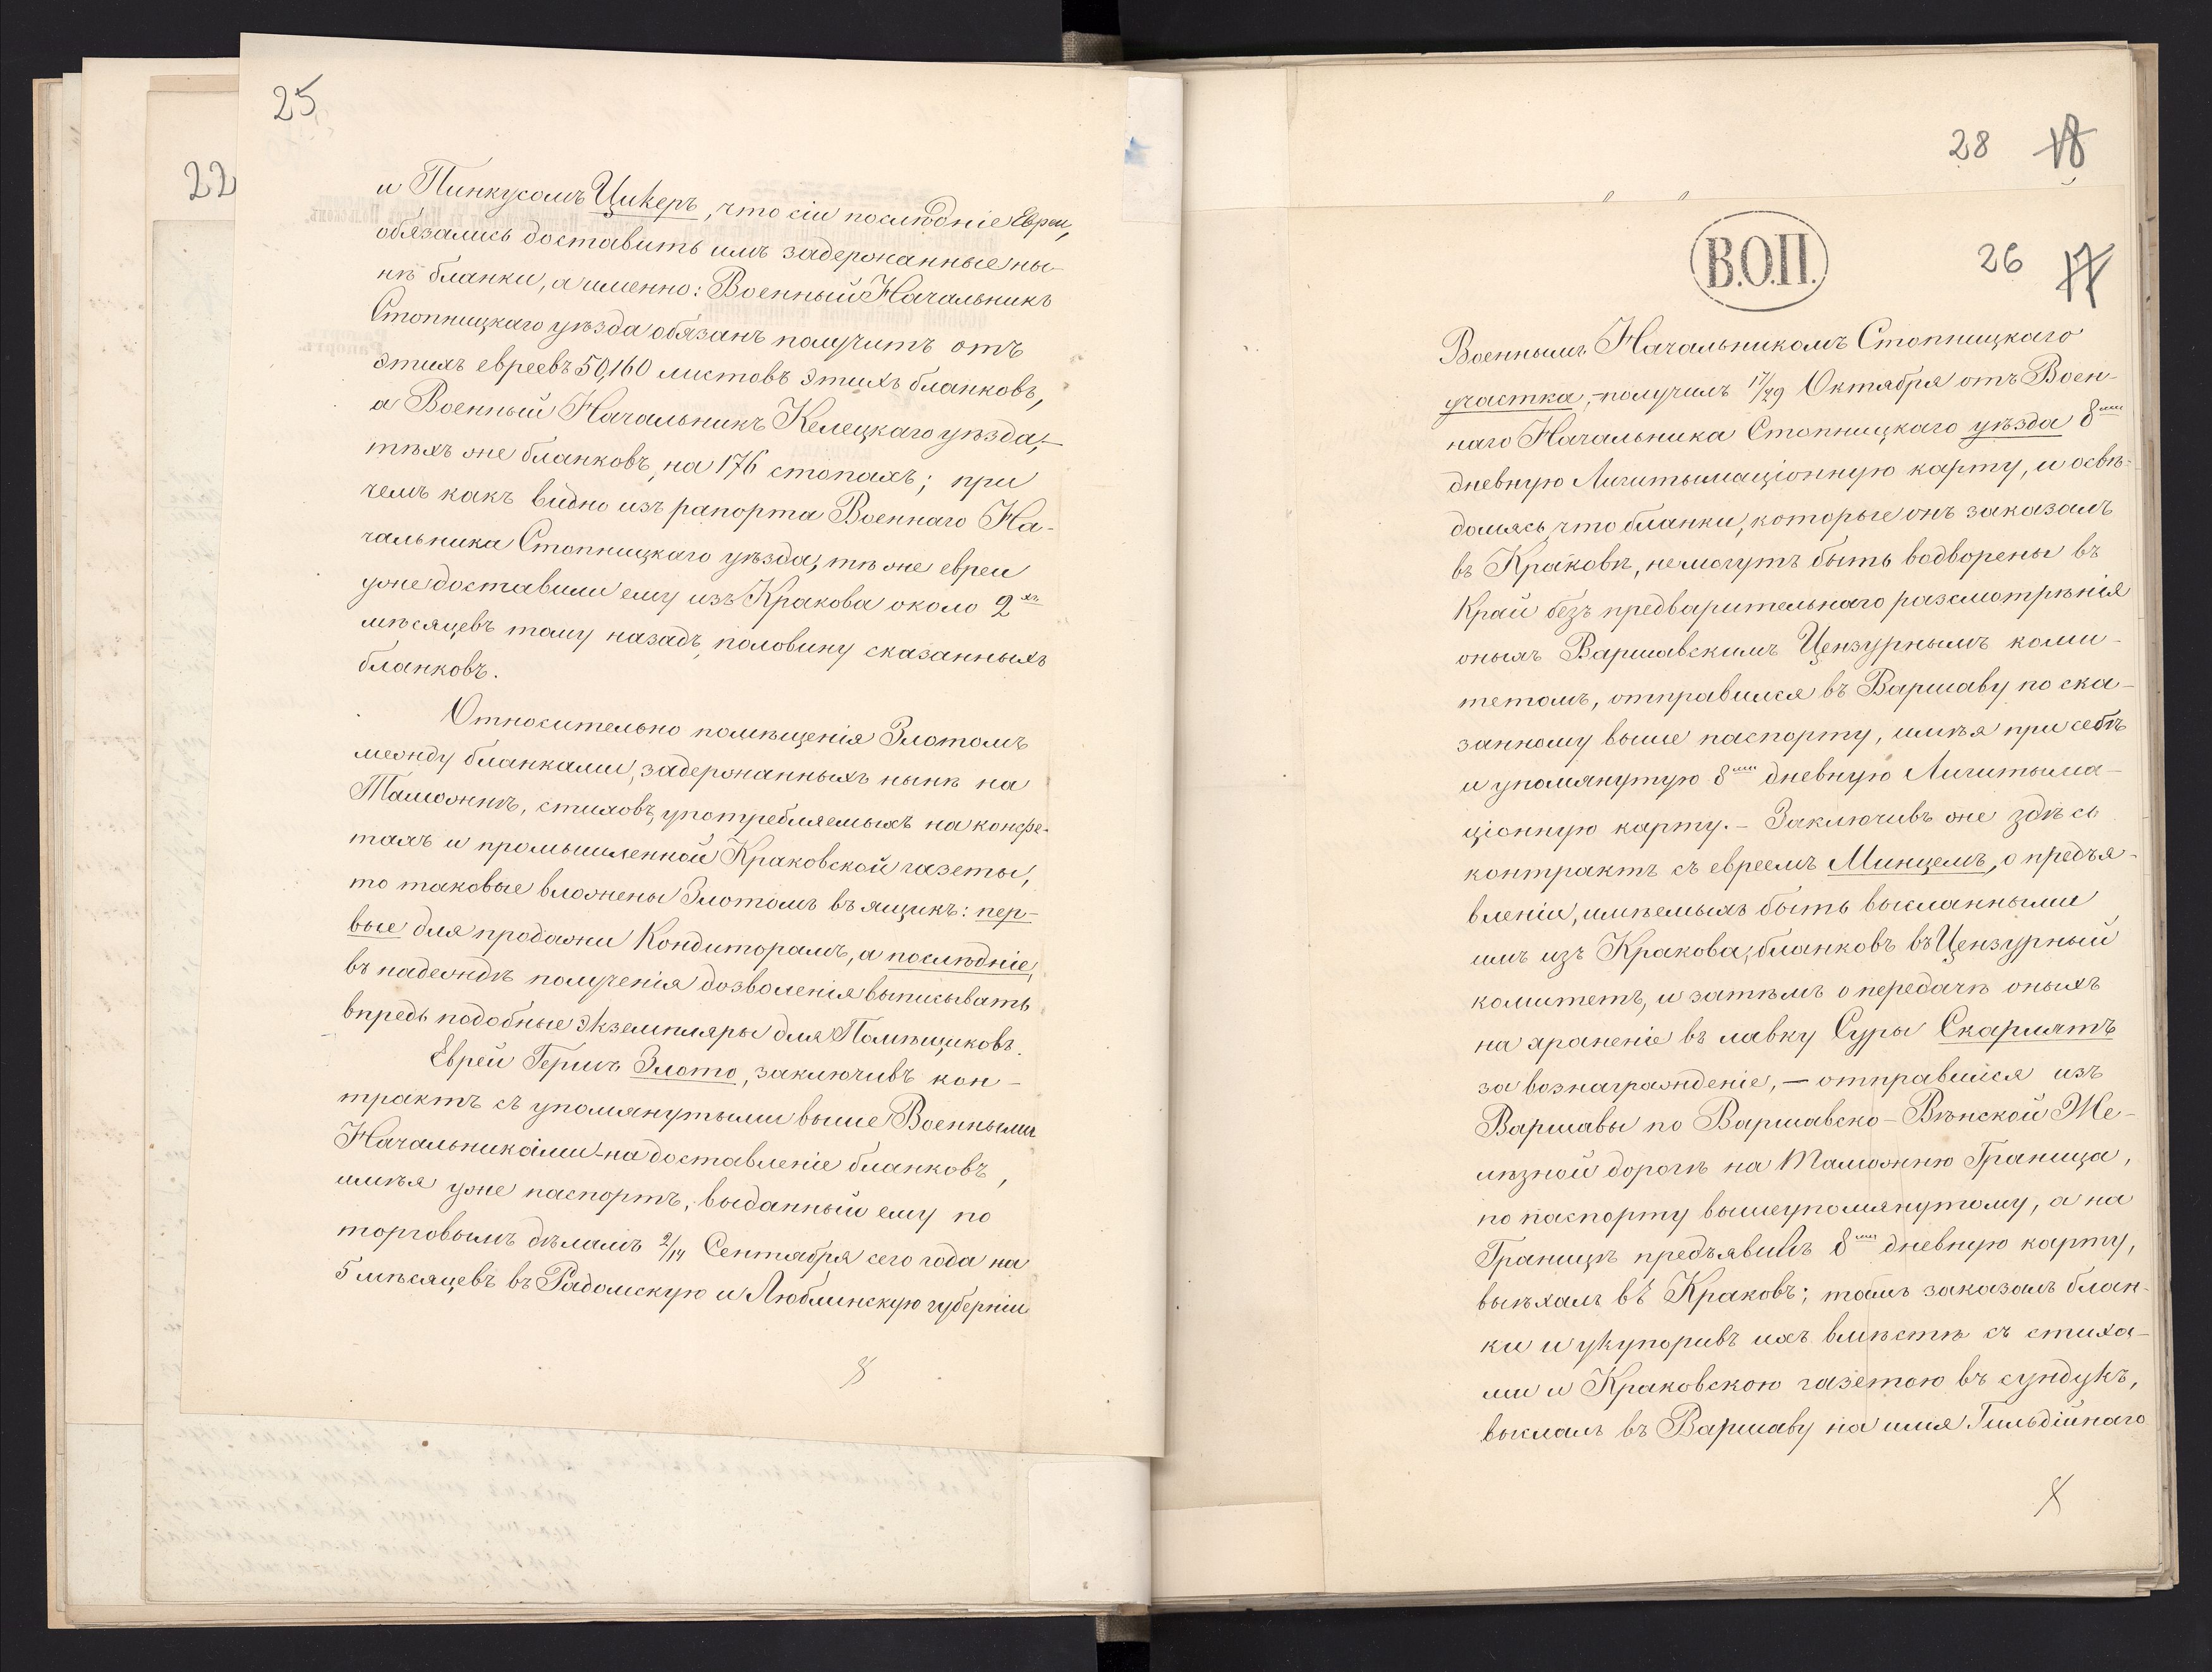 25
22
и Пинкусомъ Цикеръ, что сіи послѣдніе Евреи,
обязались доставить имъ задержанные ны-
нѣ бланки, а именно: Военный Начальникъ
Стопницкаго уѣзда обязанъ получить отъ
этихъ евреевъ 50,160 листовъ этихъ бланковъ,
а Военный Начальникъ Келецкаго уѣзда,
тѣхъ же бланковъ, на 176 стопахъ; при
чемъ какъ видно изъ рапорта Военнаго На-
чальника Стопницкаго уѣзда, тѣ же евреи
уже доставили ему изъ Кракова около 2хъ
мѣсяцевъ тому назадъ, половину сказанныхъ
бланковъ.
Относительно помѣщенія Злотомъ
между бланками, задержанныхъ нынѣ на
Таможнѣ, стиховъ, употребляемыхъ на конфе-
тахъ и промышленной Краковской газеты,
то таковые вложены Злотомъ въ ящикъ: пер-
вые для продажи Кондиторамъ, а послѣдніе,
въ надеждѣ полученія дозволенія выписывать
впредь подобные экземпляры для Помѣщиковъ.
Еврей Гершъ Злото, заключивъ кон-
трактъ съ упомянутыми выше Военными
Начальниками на доставленіе бланковъ,
имѣя уже паспортъ, выданный ему по
торговымъ дѣламъ 2/14 Сентября сего года на
5 мѣсяцевъ въ Радомскую и Люблинскую губерніи
28 18
В.О.П.
26 17
Военнымъ Начальникомъ Стопницкаго
участка, - получилъ 17/29 Октября отъ Воен-
наго Начальника Стопницкаго уѣзда 8ми
дневную Лигитымаціонную карту, и освѣ-
домясь, что бланки, которые онъ заказалъ
въ Краковѣ, немогутъ быть водворены въ
Край безъ предварительнаго разсмотрѣнія
оныхъ Варшавскимъ Цензурнымъ коми-
тетомъ, отправился въ Варшаву по ска-
занному выше паспорту, имѣя при себѣ
и упомянутую 8ми дневную Лигитыма-
ціонную карту. - Заключивъ же здѣсь
контрактъ съ евреемъ Минцемъ, о предъя-
вленіи, имѣемыхъ быть высланными
имъ изъ Кракова, бланковъ въ Цензурный
комитетъ, и затѣмъ о передачѣ оныхъ
на храненіе въ лавку Суры Скарлятъ
за вознагражденіе, - отправился изъ
Варшавы по Варшавско-Вѣнской Же-
лѣзной дорогѣ на Таможню Граница,
по паспорту вышеупомянутому, а на
Границѣ предъявилъ 8ми дневную карту,
выѣхалъ въ Краковъ; тамъ заказалъ блан-
ки и укупоривъ ихъ вмѣстѣ съ стиха-
ми и Краковскою газетою въ сундукъ,
выслалъ въ Варшаву на имя Гильдійнаго